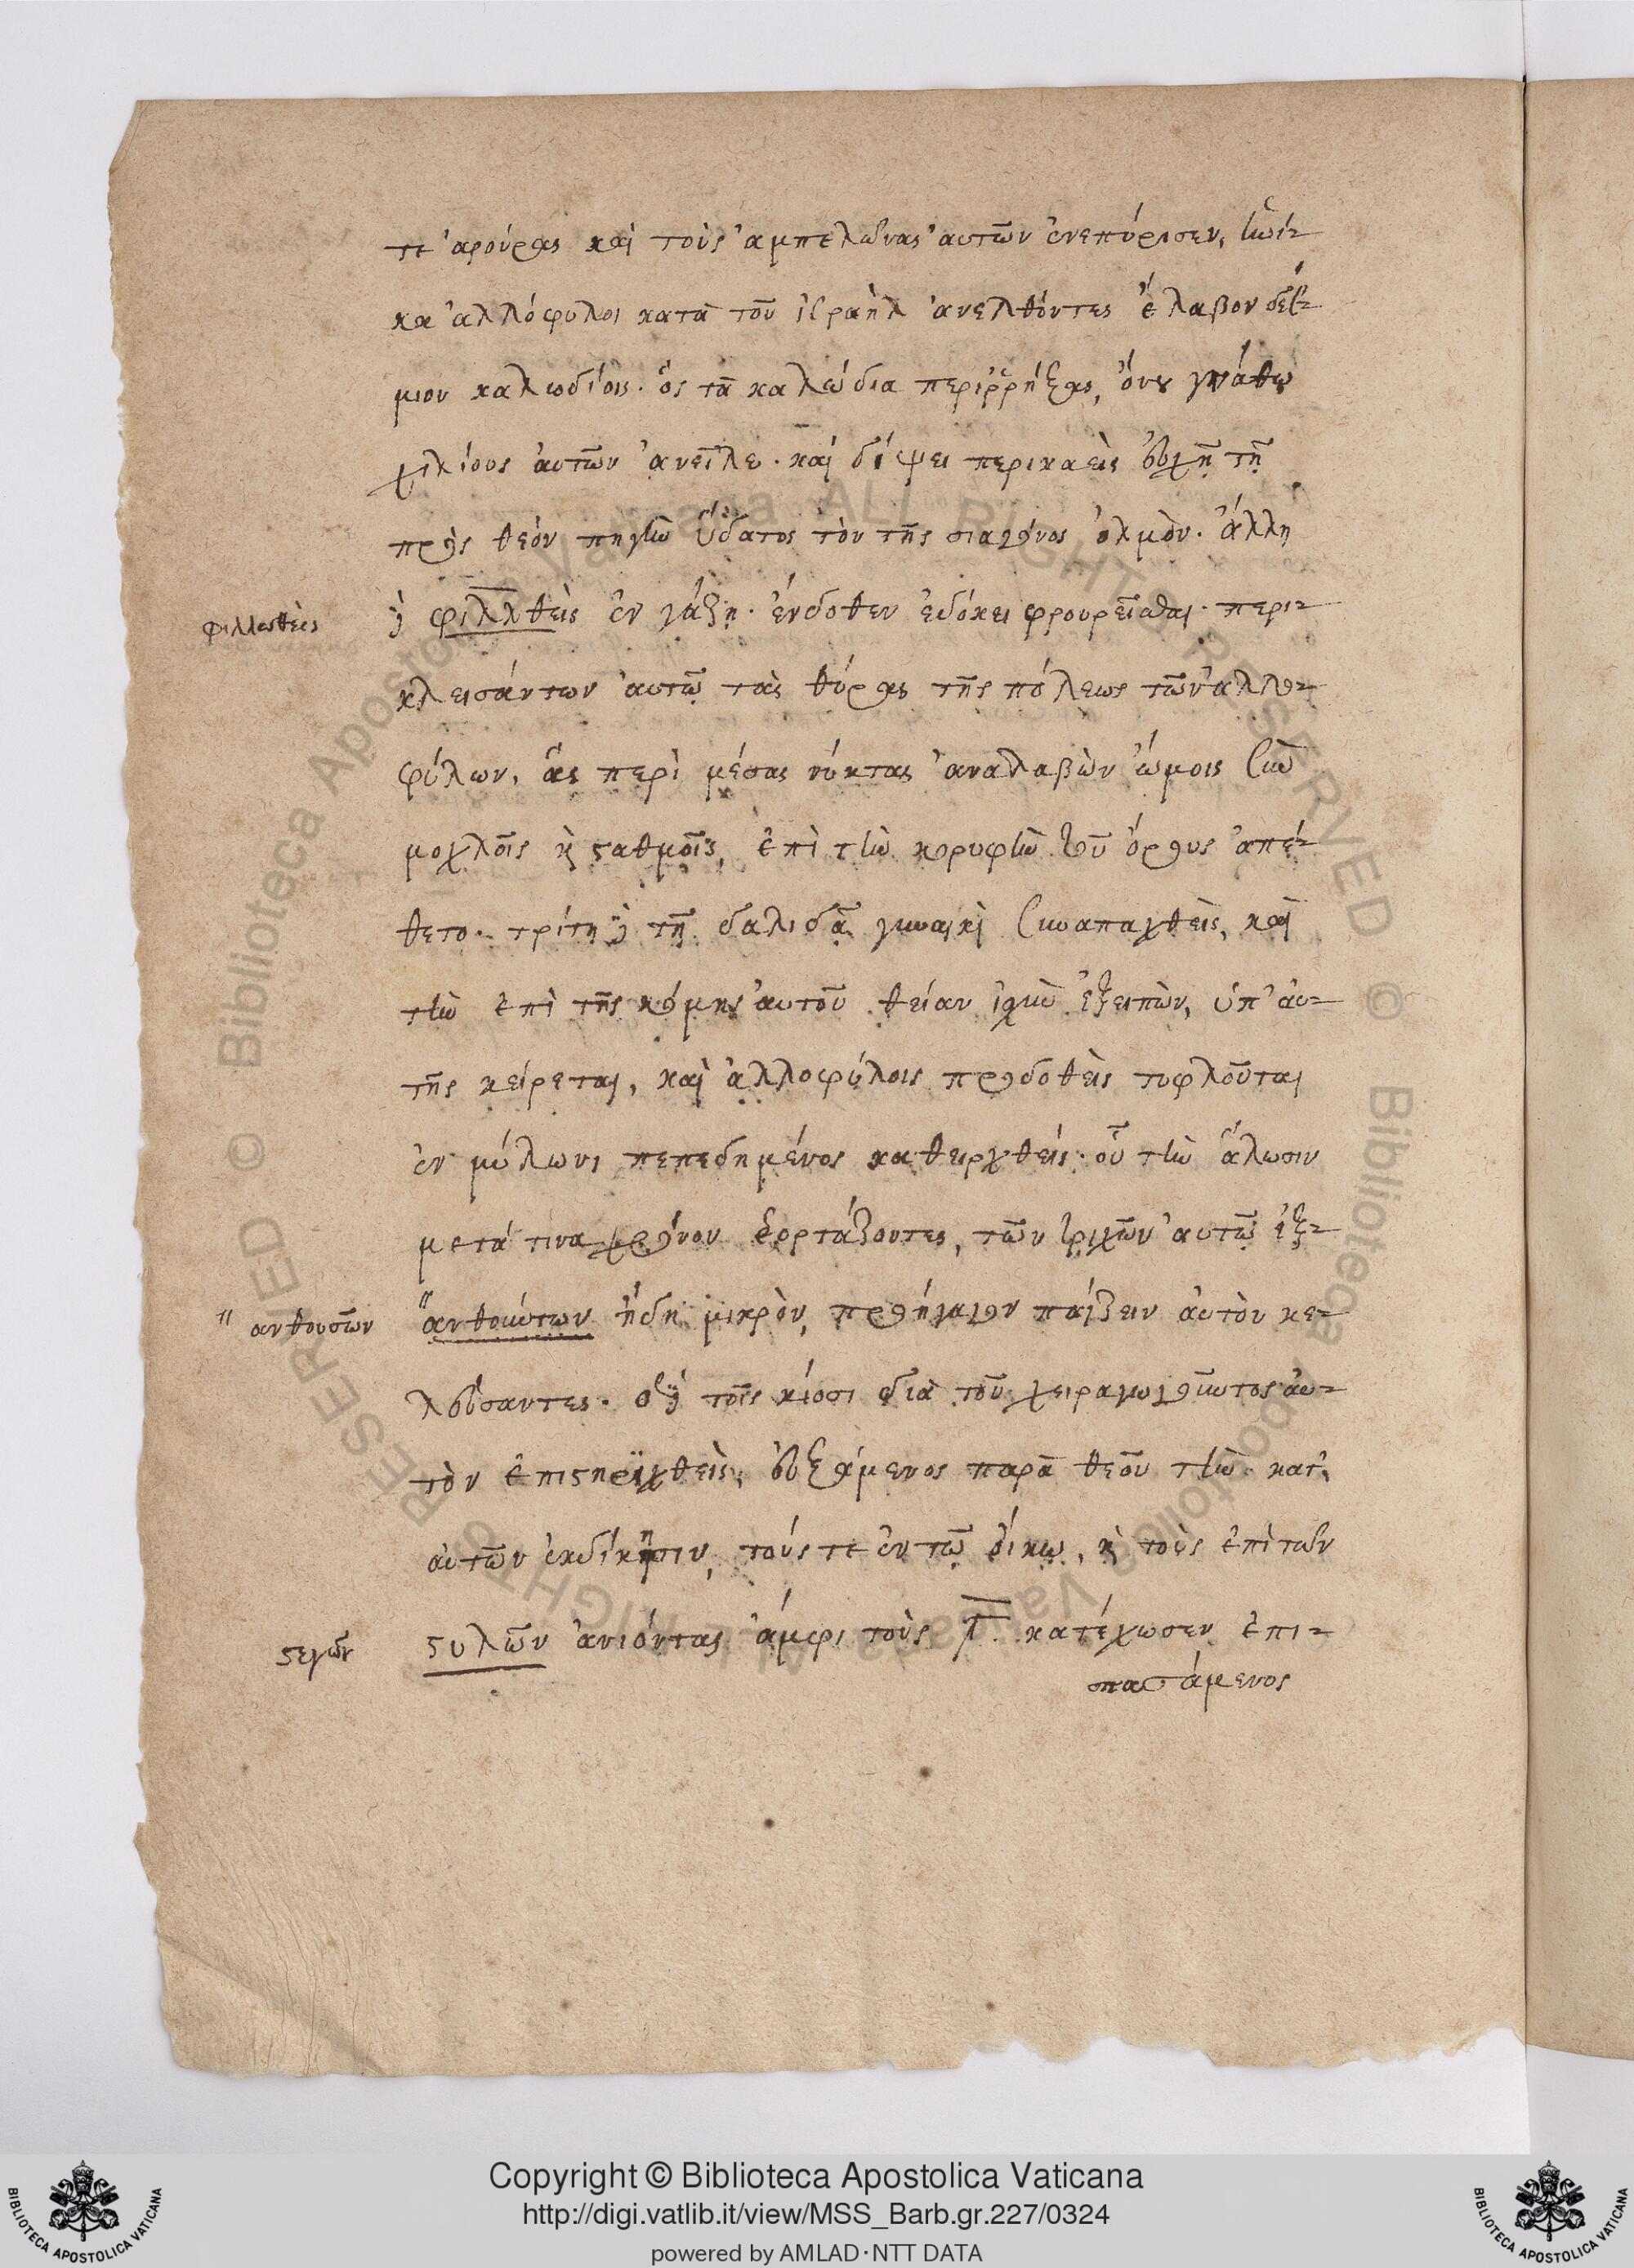 τε ἀρούρας καὶ τοὺς ἀμπελῶνας αὐτῶν ἐνεπύρισεν,
κα ἀλλόφυλοι κατὰ τοῦ ἰσραὴλ ἀνελθόντες ἔλαβον δέσ-
μιον καλωδίοις. ὃς τὰ καλώδια περιῤῥήξας, ὄνου γνάθω
χιλίους αὐτῶν ἀνεῖλε. καὶ δίψει περικαεὶς εὐχῇ τῇ
πρὸς θεόν πηγὴν ὕδατος τὸν τῆς σιαγόνος ὁλμὸν. ἄλλη
φιλλιεθεὶς
δὲ φιλλθεὶς ἐν γάζῃ. ἔνδοθεν ἐδόκει φρουρεῖσθαι. περι-
κλεισάντων αὐτῶ τὰς θύρας τῆς πόλεως τῶν ἀλλο-
φύλων, ἃς περὶ μέσας νύκτας ἀναλαβὼν ὤμοις σὺν
μοχλοῖς κ̀ ϛαθμοῖς, ἐπὶ τὴν κορυφὴν τοῦ ὄρους ἀπέ-
θετο. τρίτη δὲ τῇ δαλιδᾷ γυναικὶ συναπαχθεὶς, καὶ
τὴν ἐπὶ τῆς κόμης αὐτοῦ θείαν ἰσχὺν ἐξειπὼν, ὑπ' αὐ-
τῆς κείρεται, καὶ ἀλλοφύλοις προδοθεὶς τυφλοῦται
ἐν μύλωνι πεπεδημένος καθειρχθείς. οὗ τὴν ἅλωσιν
μετά τινα χρόνον ἑορτάζοντες, τῶν τριχῶν αὐτῶ ἐξ-
" ανθουσῶν
"ανθουώτων ἤδη μικρὸν, προήγαγον παίζειν αὐτὸν κε-
λεύσαντες. ὁ δὲ τοῖς κίοσι διὰ τοῦ χειραγωγοῦντος αὐ-
τὸν ἐπιϛηριχθεὶς, εὐξάμενος παρὰ θεοῦ τὴν κατ'
αὐτῶν ἐκδίκησιν, τούς τε ἐν τῶ οἴκω, κ̀ τοὺς ἐπὶ τῶν
ϛεγῶν
ϛυλῶν ἀνιόντας ἀμφι τοὺς Γ. κατέχωσεν ἐπι-
σπασάμενος
Copyright © Biblioteca Apostolica Vaticana
http://digi.vatlib.it/view/MSS_Barb.gr.227/0324
powered by AMLAD·NTT DATA